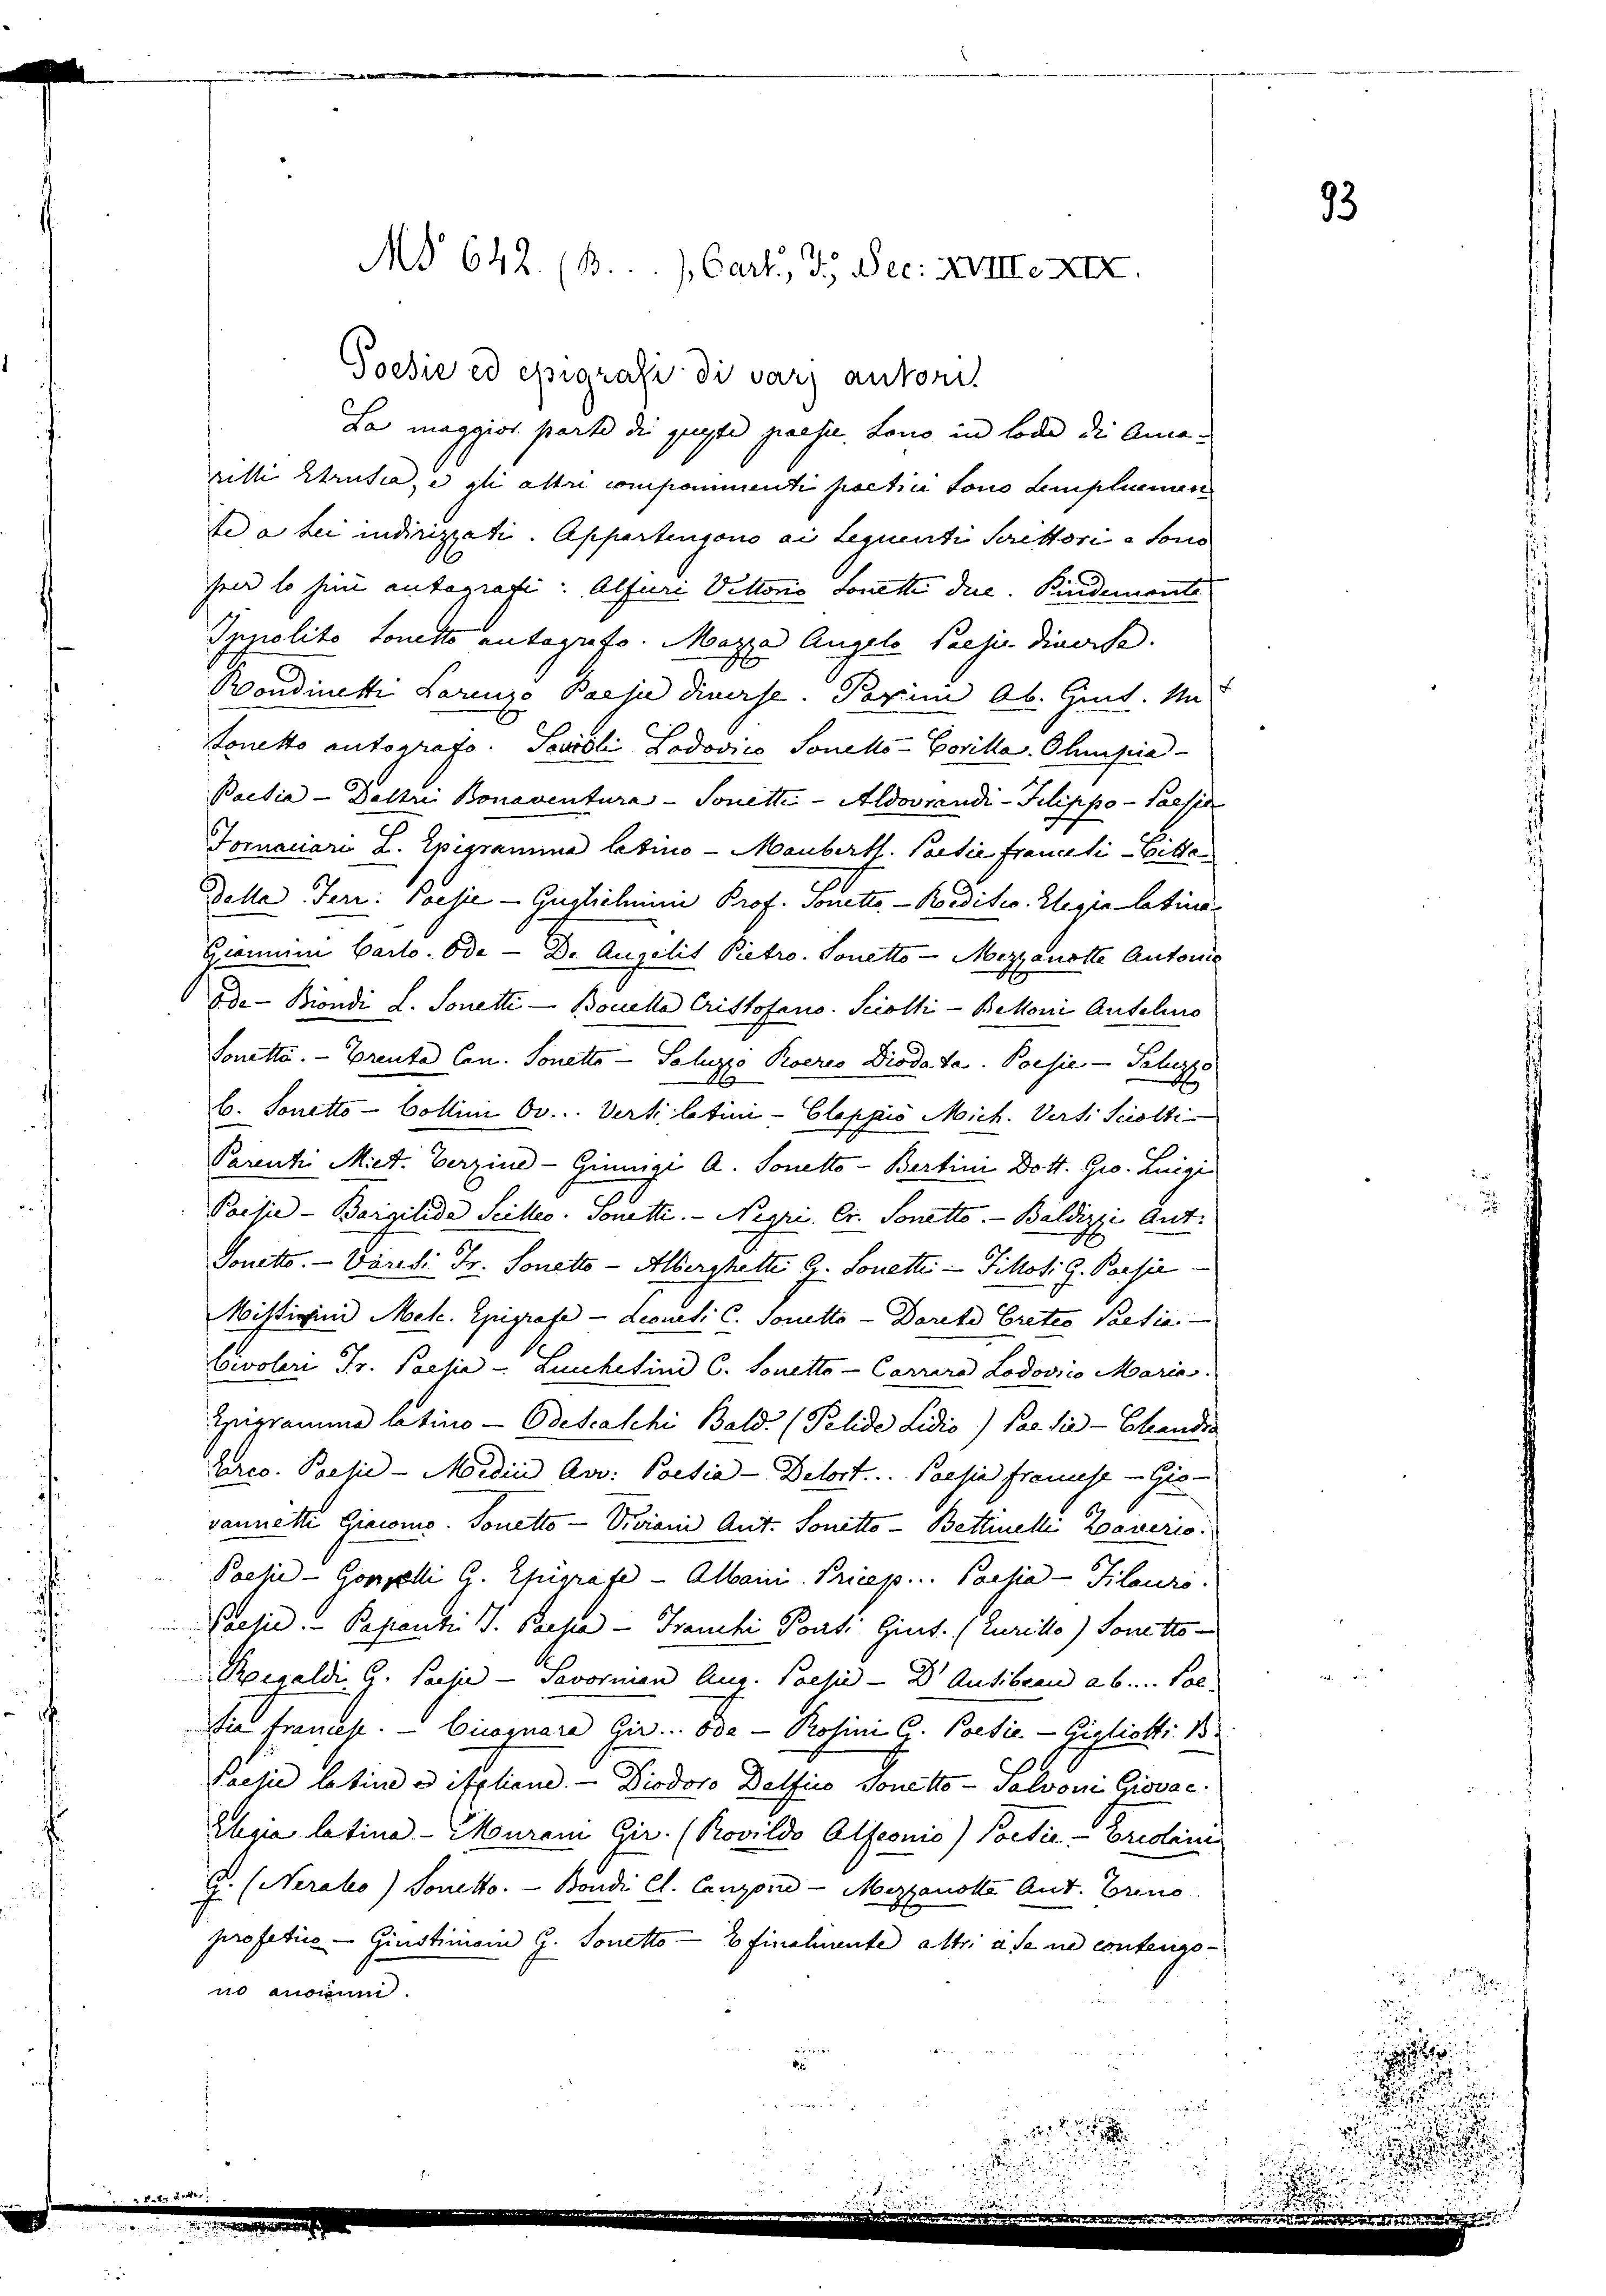 93
MS 642. (B. . . ), Cart., S., Sec: XVIII e XIX.
Poesie ed epigrafi di varj autori.
La maggior parte di queste poesie, sono in lode di Ama-
rilli Etrusca, e gli altri componimenti poetici sono semplicemen
te a lei indirizzati. Appartengono ai seguenti Scrittori e sono
per lo più autografi: Alfieri Vittorio Sonetti due. Pindemonte
Ippolito Sonetto autografo. Mazza Angelo Poesie diverse.
Rondinetti Lorenzo Poesie diverse. Parini Ab. Gius. Un
sonetto autografo. Savioli Lodovico Sonetto - Corilla. Olimpia -
Poesia - Daltri Bonaventura - Sonetti - Aldovrandi - Filippo - Poesie
Fornaciari L. Epigramma latino - Mauberth. Poesie francesi - Citta
della Ferr: Poesie - Guglielmini Prof. Sonetto. - Elegia latina
Giannini Carlo. Ode - De Angelis Pietro. Sonetto - Mezzanotte Antonio
Ode - Biondi L. Sonetti - Boccella Cristofano. Sciolti - Belloni Anselmo
Sonetto. - Trenta Can. Sonetto - Saluzzo Roero Diodata. Poesie. - Saluzzo
C. Sonetto - Collini Ov... Versi latini - Clappiò Mich. Versi Sciolti -
Parenti Mict. Terzine - Ginnigi A. Sonetto - Bertini Dott. Gio. Luigi
Poesie - Bargilide Sonetti. - Negri. Cr. Sonetto. - Baldizzi Ant.
Sonetto. - Varesi Fr. Sonetto - Alberghetti G. Sonetti - G. Poesie -
Missirini Melc. Epigrafe - Leonesi C. Sonetto - Darete Creteo Poesia. -
Civoleri Fr. Poesia - Lucchesini C. Sonetto - Carrara Lodovico Maria.
Epigramma latino - Odescalchi Bald. (Pelide Lidio) Poesie - Cleandro
Poesie - Medici Avv: Poesia - Delort... Poesia francese - Gio-
vannetti Giacomo. Sonetto - Viviani Ant. Sonetto - Bettinelli Zaverio.
Poesie - G. Epigrafe - Albani Pricep... Poesia - Filauro.
Poesie. - Papanti J. Poesia - Franchi Ponsi Gius. (Eurillo) Sonetto -
Regaldi G. Poesie - Savornian Aug. Poesie - D'Autibeau ab.... Poe
sia francese. - Cicognara Gir... Ode - Rosini G. Poesie - Gigliotti B.
Poesie latine ed italiane. - Diodoro Delfico Sonetto - Salvoni Giovac.
Elegia latina - Murani Gir. (Rovildo Alfeonio) Poesie - Eridani
G. (Neralco) Sonetto. - Bondi Cl. Canzone - Mezzanotte Ant. Treno
profetico - Giustiniani G. Sonetto - E finalmente altri assa ne contengo-
no anonimi.